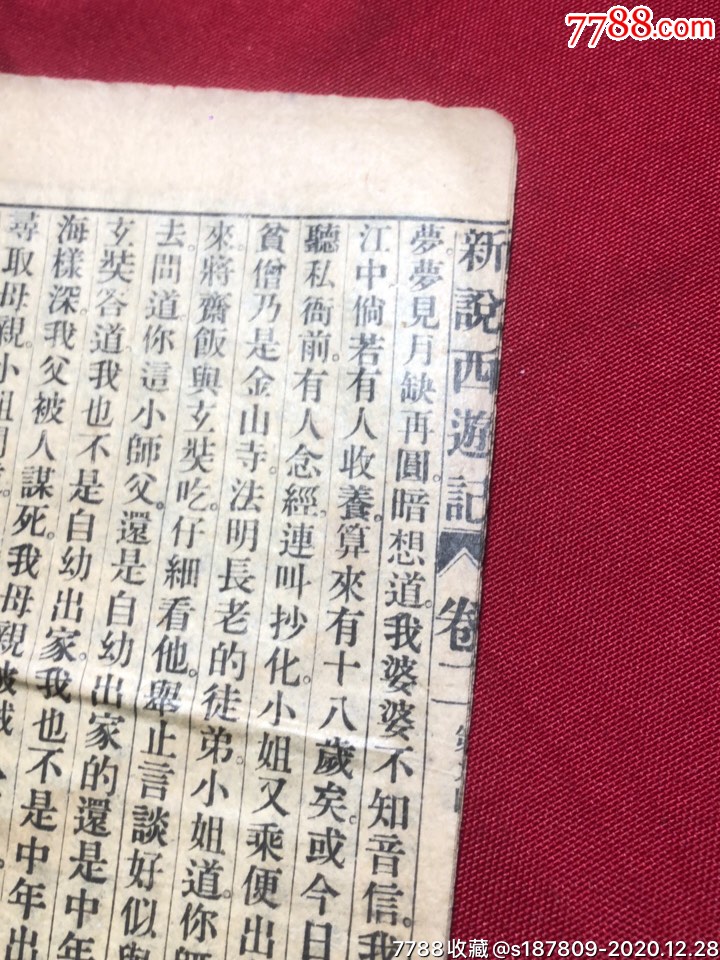 7788.com
新說西遊記 卷二
夢。夢見月缺再圓。暗想道。我婆婆不知音信。我
江中倘若有人收養。算來有十八歲矣。或今日
聽私衙前。有人念經。連叫抄化。小姐又乘便出
貧僧乃是金山寺。法明長老的徒弟。小姐道。你師
來。將齋飯與玄奘吃。仔細看他。舉止言談。好似與
去。問道你這小師父。還是自幼出家的。還是中年
玄奘答道。我也不是自幼出家。我也不是中年出
海樣深。我父被人謀死。我母親被
尋取母親。小姐
7788收藏@s187809-2020.12.28